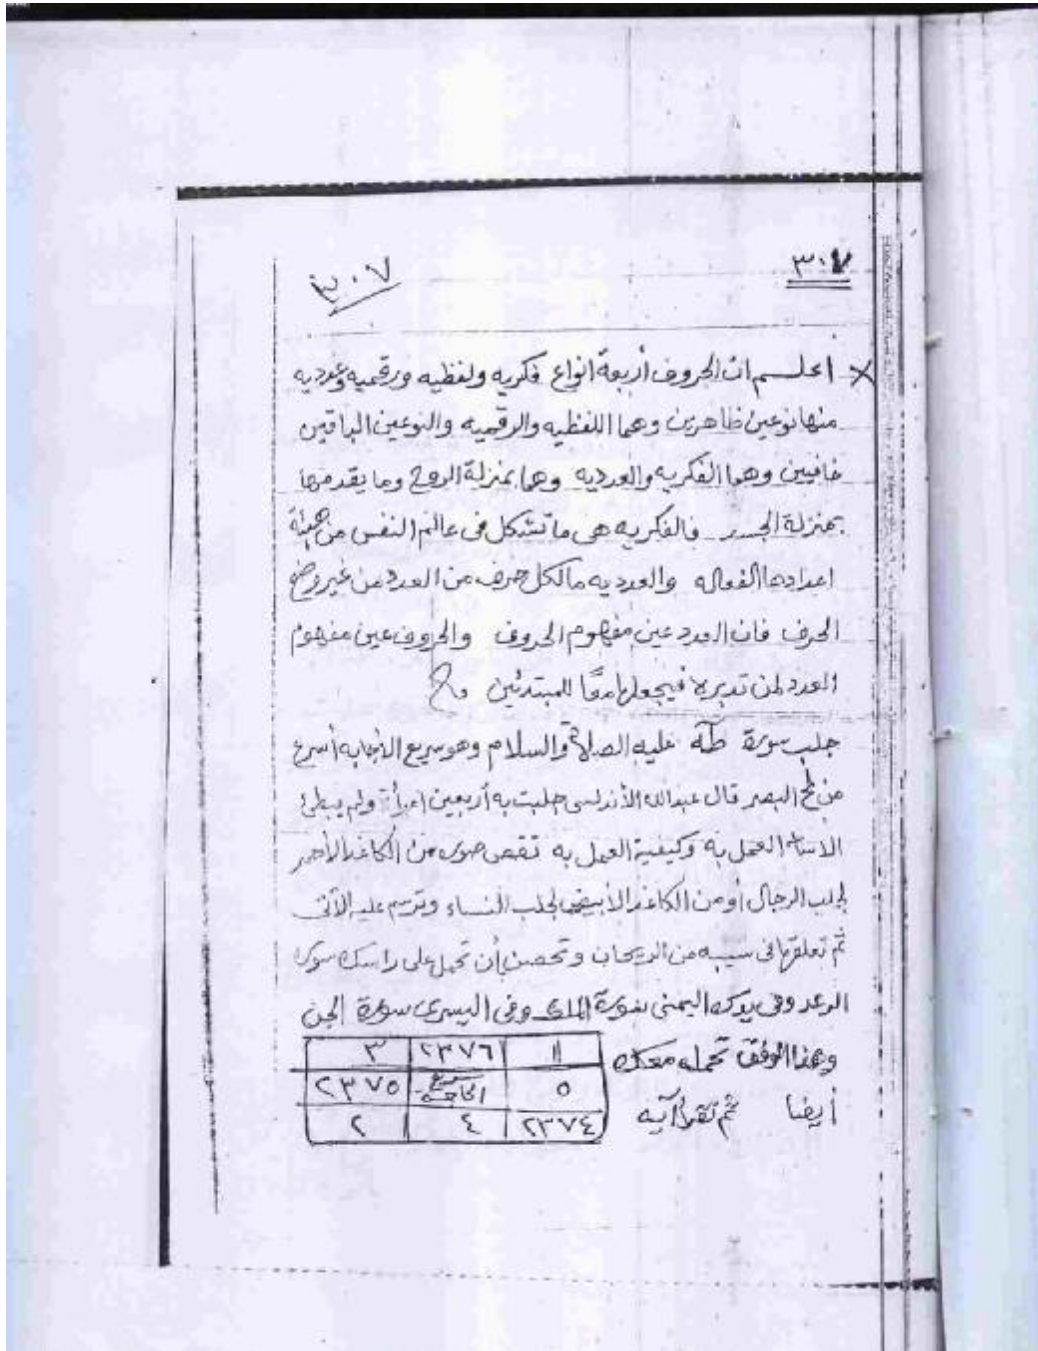 ٣٠٧
٣٠٧
× اعلم ان الحروف أربعة انواع فكريه ولفظيه ورقميه وعدديه
منها نوعين ظاهرين وهما اللفظيه والرقميه والنوعين الباقين
خافيين وهما الفكريه والعدديه وهما بمنزلة الروح وما يقدمها
بمنزلة الجسد فالفكريه هى ما تشكل فى عالم النفس من هيئة
اعدادها الفعاله والعدديه ما لكل حرف من العدد من غير وضع
الحرف فان العدد عين مفهوم الحروف والحروف عين مفهوم
العدد لمن تدبره فيجعلها معًا للمبتدئين
جلب سورة طه عليه الصلاة والسلام وهو سريع الأجابه أسرع
من لمح البصر قال عبدالله الأندلسى جلبت به أربعين امرأة ولم يبطئ
العمل به وكيفية العمل به تقص صوره من الكاغد الأحمر
لجلب الرجال أو من الكاغد الأبيض لجلب النساء وترسم عليه الأتى
ثم تعلقها فى سيبه من الريحان وتحصن بأن تحمل على راسك سورة
الرعد وفى يدك اليمنى سورة الملك وفى اليسرى سورة الجن
وهذا الوفق تحمله معك
أيضا ثم تقرأ آيه
١١ ٢٣٧٦ ٣
٥ سريع الحاجه ٢٣٧٥
٢٣٧٤ ٤ ٢